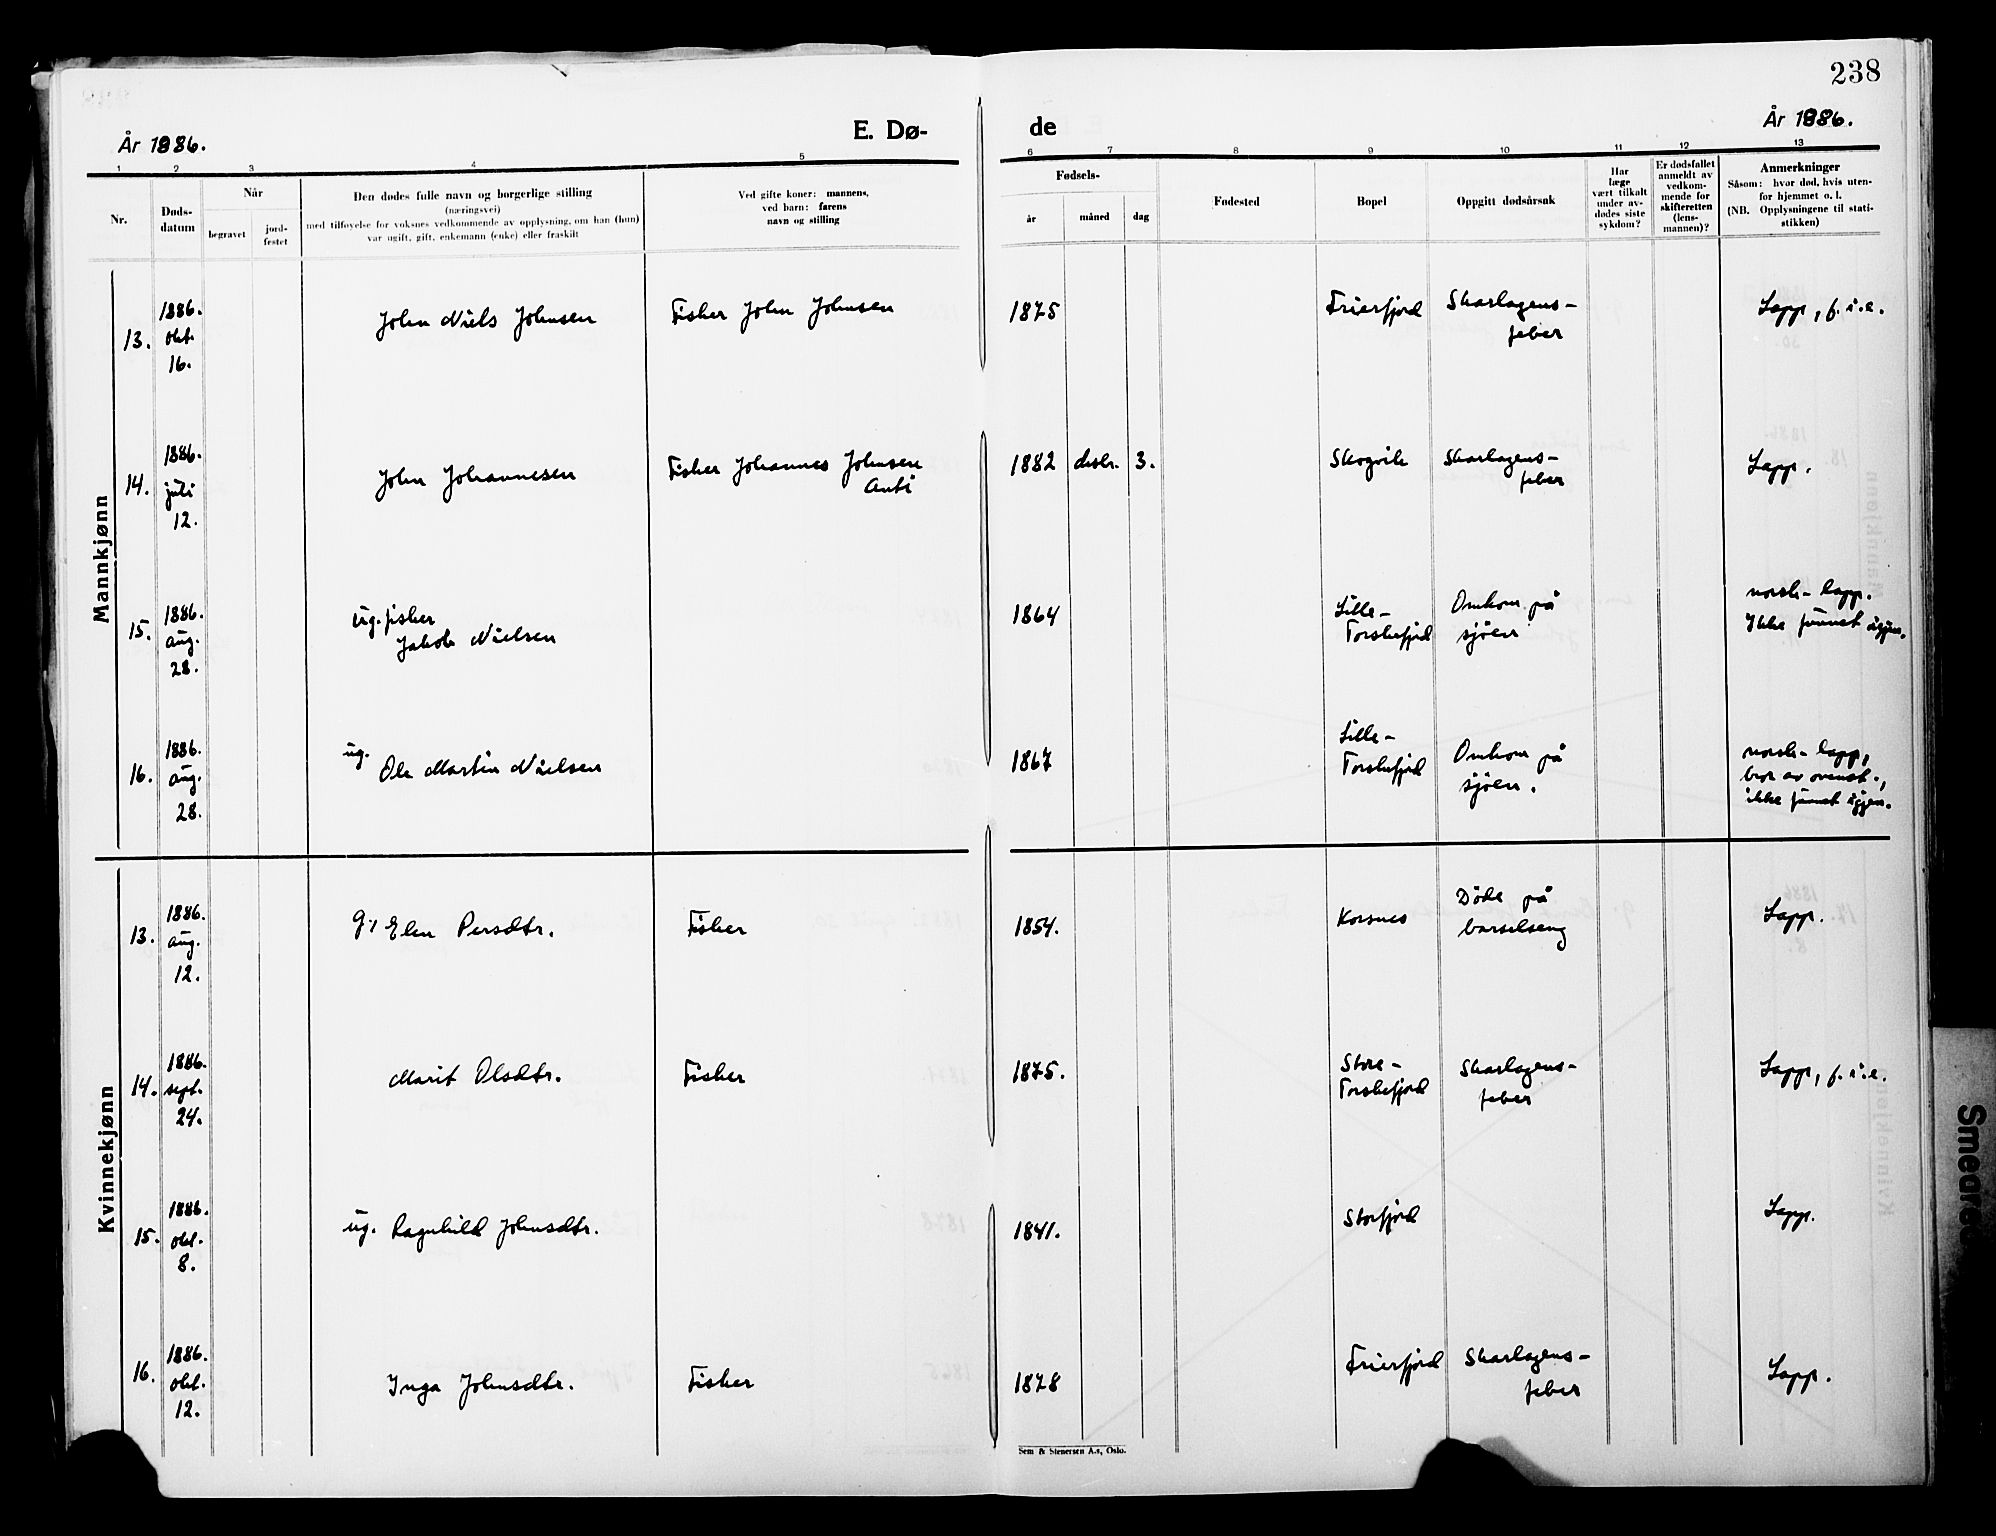 238
År 1886.
E. Dø-
de
År 1886.
1 2 3 4 5 6 7 8 9 10 11 12 13
Nr.
Døds-
datum
Når
begravet
jord-
festet
Den dødes fulle navn og borgerlige stilling
(næringsvei)
med tilføyelse for voksnes vedkommende av opplysning, om han (hun)
var ugift, gift, enkemann (enke) eller fraskilt
Ved gifte koner: mannens,
ved barn: farens
navn og stilling
Fødsels-
år
måned
dag
Fødested
Bopel
Oppgitt dødsårsak
Har
læge
vært tilkalt
under av-
dødes siste
sykdom?
Er dødsfallet
anmeldt av
vedkom-
mende for
skifteretten
(lens-
mannen)?
Anmerkninger
Såsom: hvor død, hvis uten-
for hjemmet o. l.
(NB. Opplysningene til stati-
stikken)
Mannkjønn
13.
1886.
okt.
16.
John Niels Johnsen
Fisker John Johnsen
1875
Frierfjord
Skarlagens-
feber
Lapp, f. i. e.
14.
1886.
juli
12.
John Johannesen
Fisker Johannes Johnsen
Anti
1882 desbr. 3.
Skogvik
Skarlagens-
feber
Lapp.
15.
1886.
aug.
28.
ug. fisker
Jakob Nielsen
1864
Lille-
Torskefjord
Omkom på
sjöen
norsk-lapp.
Ikke funnet igjen.
16.
1886.
aug.
28.
ug.
Ole Martin Nielsen
1867
Lille-
Torskefjord
Omkom på
sjöen.
norsk-lapp,
bror av ovenst.,
ikke funnet igjen.
Kvinnekjønn
13.
1886.
aug.
12.
g. Elen Persdtr.
Fisker
1854.
Korsnes
Döde på
barselseng
Lapp.
14.
1886.
sept.
24.
Marit Olsdtr.
Fisker
1875.
Store-
Torskefjord
Skarlagens-
feber
Lapp, f. i. e.
15.
1886.
okt.
8.
ug. Ragnhild Johnsdtr.
1841.
Storfjord
Lapp.
16.
1886.
okt.
12.
Inga Johnsdtr.
Fisker
1878
Frierfjord
Skarlagens-
feber
Lapp.
Sem & Stenersen A.s, Oslo.